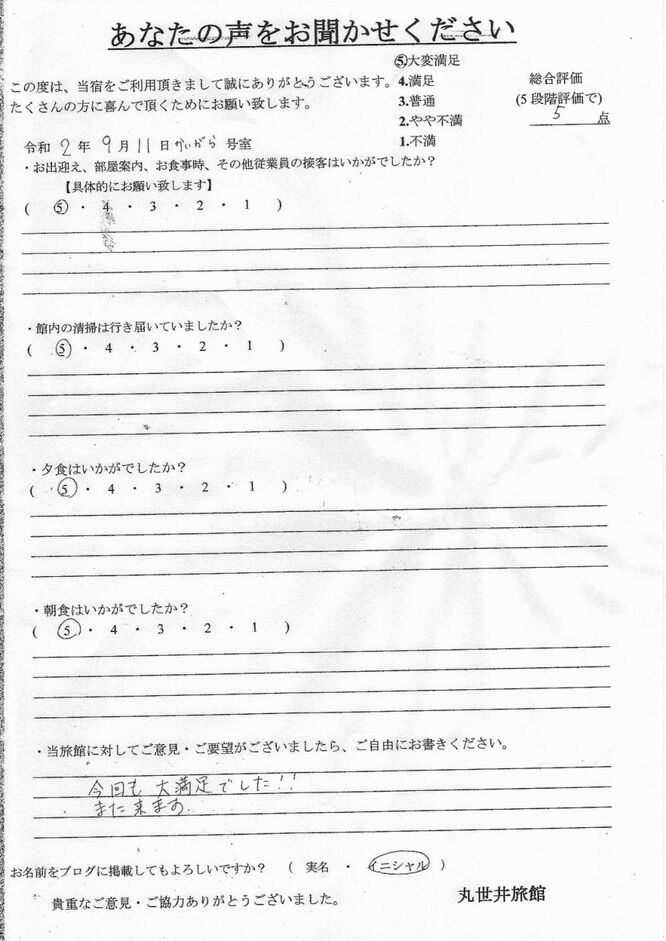 あなたの声をお聞かせください
この度は、当宿をご利用頂きまして誠にありがとうございます。
たくさんの方に喜んで頂くためにお願い致します。
5.大変満足
4.満足
3.普通
2.やや不満
1.不満
総合評価
(5段階評価で)
5 点
令和 2 年 9 月 11 日 かいがら 号室
・お出迎え、部屋案内、お食事時、その他従業員の接客はいかがでしたか？
【具体的にお願い致します】
( 5 ・ 4 ・ 3 ・ 2 ・ 1 )
・館内の清掃は行き届いていましたか？
( 5 ・ 4 ・ 3 ・ 2 ・ 1 )
・夕食はいかがでしたか？
( 5 ・ 4 ・ 3 ・ 2 ・ 1 )
・朝食はいかがでしたか？
( 5 ・ 4 ・ 3 ・ 2 ・ 1 )
・当旅館に対してご意見・ご要望がございましたら、ご自由にお書きください。
今回も 大満足でした!!
また来ます.
お名前をブログに掲載してもよろしいですか？ ( 実名 ・ イニシャル )
貴重なご意見・ご協力ありがとうございました。
丸世井旅館